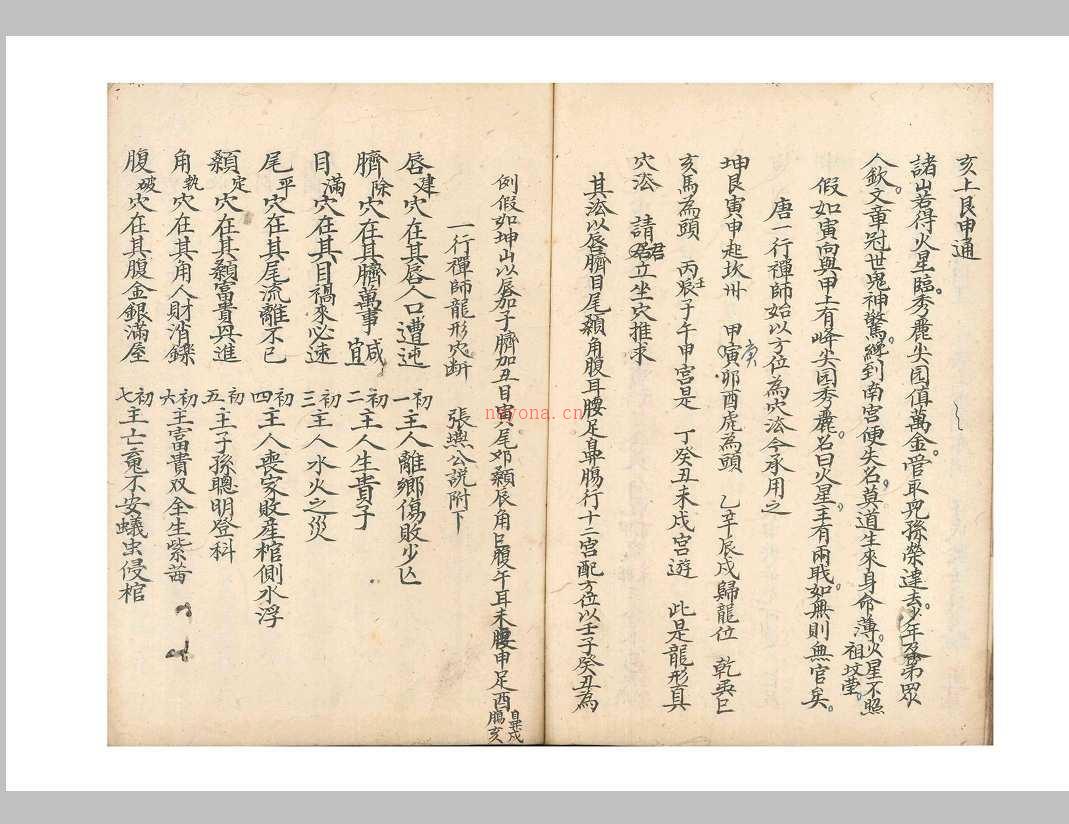 亥上艮申通
諸山若得火星臨秀麗尖园值萬金管取兒孫榮達去少年及第眾
人欽文章冠世鬼神驚縂到南宮便失名莫道生來身命薄祖坟火星不照塋
假如寅向與甲上有峰尖园秀麗名曰火星主有兩戝如無則無官矣
唐一行禪師始以方位為穴法今承用之
坤艮寅申起坎卅　甲庚寅卯酉虎為頭　乙辛辰戌歸龍位　乾巽巳
亥馬為頭　丙壬子午申宮是　丁癸丑未戌宮遊　此是龍形真
穴法　請君立坐穴推求
其法以唇臍目尾顙角腹耳腰足鼻腸行十二宮配方位以壬子癸丑為
例假如坤山以唇加子臍加丑目寅尾夘顙辰角巳腹午耳未腰申足酉鼻戌腸亥
一行禪師龍形穴断　張燕公説附下
唇建穴在其唇人口遭迍　初一主人離鄉傷敗少亾
臍除穴在其臍萬事咸宜　初二主人生貴子
目滿穴在其目禍來必速　初三主人水火之災
尾平穴在其尾流離不已　初四主人喪家敗産棺側水浮
顙定穴在其顙富貴與進　初五主子孫聰明登科
角執穴在其角人財消鑠　初六主富貴双全生紫茜
腹破穴在其腹金銀滿屋　初七主亡䰟不安蟻虫侵棺
nayona.cn